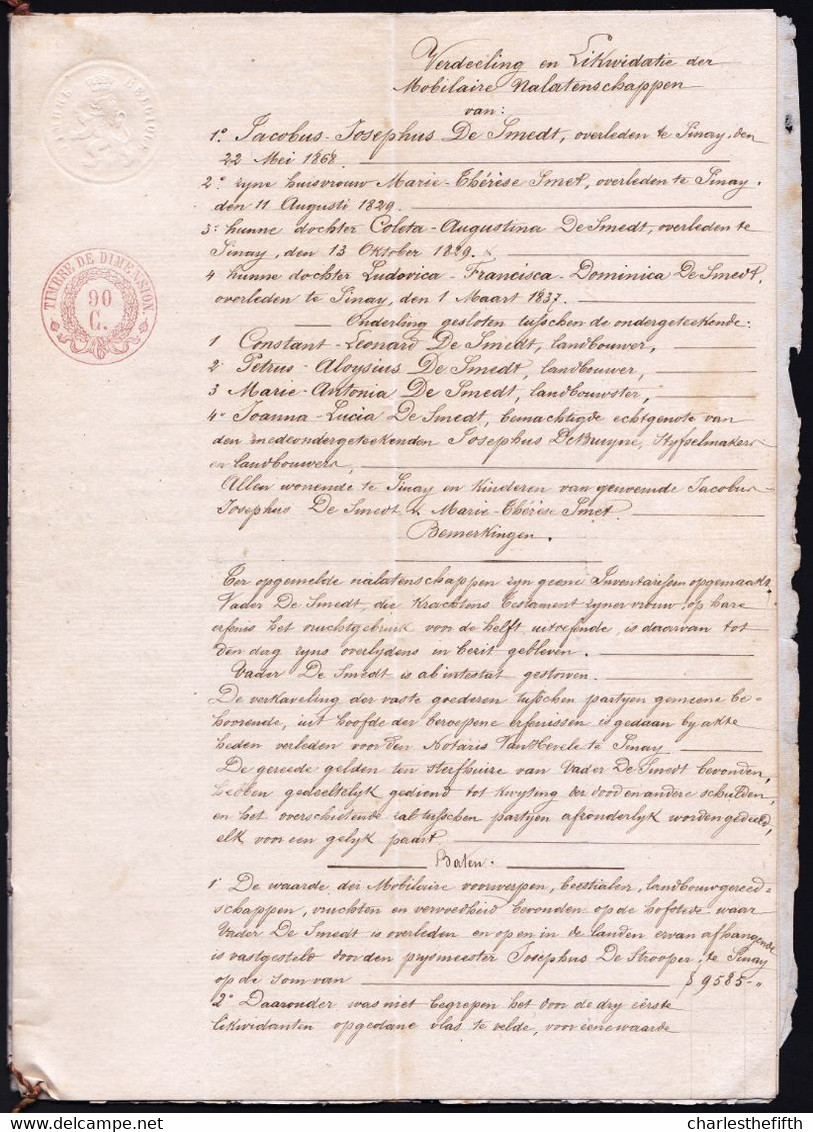 Verdeeling en Likwidatie der
Mobilaire Nalatenschappen
van:
1° Jacobus-Josephus De Smedt, overleden te Sinay, den
22 Mei 1868.
2° zyne huisvrouw Marie-Thérèse Smet, overleden te Sinay,
den 11 Augusti 1829.
3° hunne dochter Coleta-Augustina De Smedt, overleden te
Sinay, den 13 Oktober 1829.
4 hunne dochter Ludovica-Francisca-Dominica De Smedt,
overleden te Sinay, den 1 Maart 1837.
Onderling gesloten tusschen de ondergeteekende:
1 Constant-Leonard De Smedt, landbouwer,
2 Petrus-Aloysius De Smedt, landbouwer,
3 Marie-Antonia De Smedt, landbouwster,
4° Joanna-Lucia De Smedt, bemachtigde echtgenote van
den medeondergeteekenden Josephus DeBruyne, Styfselmakers
en landbouwers,
Allen wonende te Sinay en kinderen van genoemde Jacobus-
Josephus De Smedt & Marie-Thérèse Smet.
Bemerkingen.
Der opgemelde nalatenschappen zyn geene Inventarissen opgemaakt.
Vader De Smedt, die krachtens Testament zyner vrouw op hare
erfenis het vruchtgebruik voor de helft uitoefende, is daarvan tot
den dag zyns overlydens in bezit gebleven.
Vader De Smedt is ab intestat gestorven.
De verkaveling der vaste goederen tusschen partyen gemeene be-
hoorende, uit hoofde der beroepene erfenissen is gedaan by akte
heden verleden voor den Notaris Van Herele te Sinay
De gereede gelden ten sterfhuize van Vader De Smedt bevonden,
hebben gedeeltelyk gediend tot kwyting der dood en andere schulden,
en het overschietende zal tusschen partyen afzonderlyk worden gedeeld,
elk voor een gelyk paart
Baten.
1° De waarde der Mobilaire voorwerpen, beestialen, landbouwgereed-
schappen, vruchten en vervoedheid bevonden op de hofstede waar
Vader De Smedt is overleden en op en in de landen ervan afhangende
is vastgesteld door den prysmeester Josephus De Strooper, te Sinay
op de som van $ 9585-"
2° Daaronder was niet begrepen het door de dry eerste
likwidanten opgedane vlas te velde, voor eene waarde
TIMBRE DE DIMENSION.
90
C.
BELGIQUE
charlesthefifth
©delcampe.net
charlesthefifth